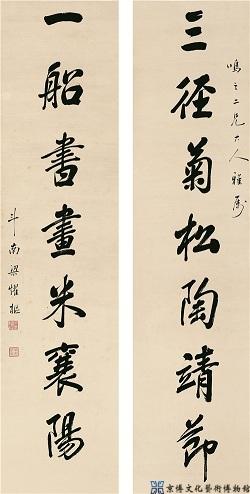 三徑菊松陶靖節
鳴之二兄大人雅屬
一船書畫米襄陽
斗南梁燿樞
京博文化藝術博物館